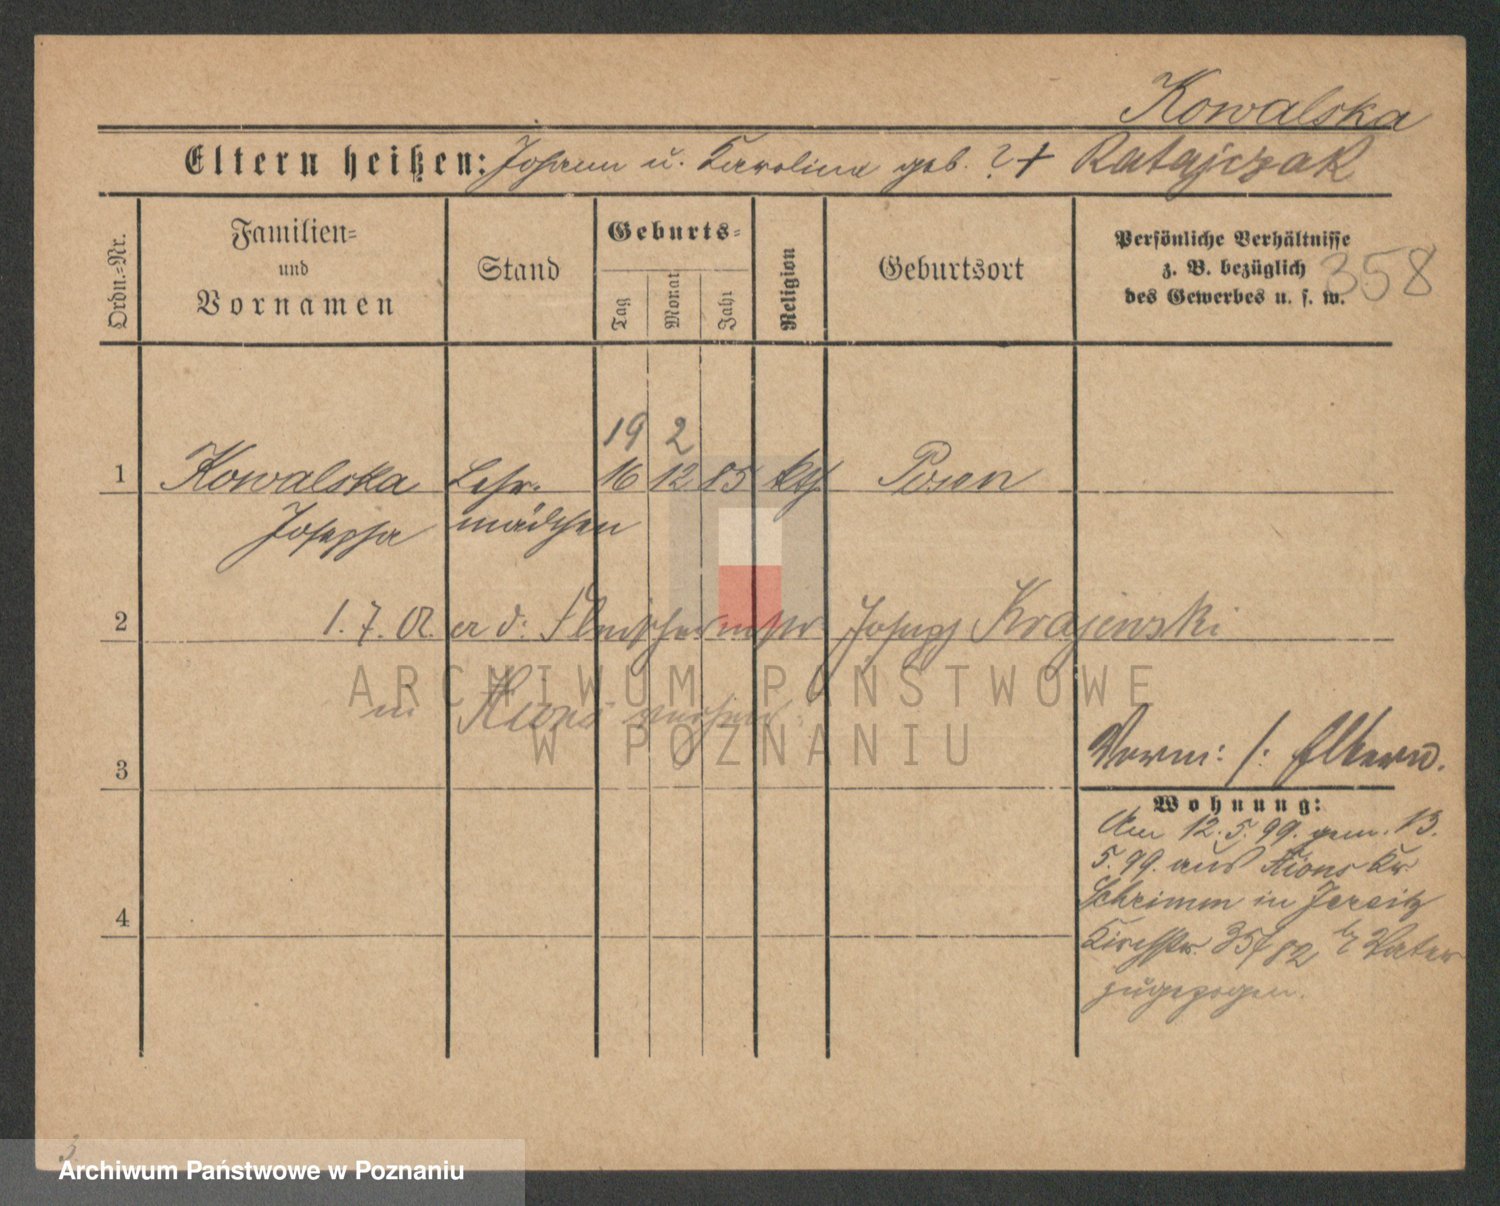 Kowalska
Eltern heißen: Johann u. Karolina geb. ? + Ratajczak
Ordn.=Nr.
Familien=
und
Vornamen
Stand
Geburts=
Tag
Monat
Jahr
Religion
Geburtsort
Persönliche Verhältnisse
z. B. bezüglich
des Gewerbes u. s. w.
358
19 2
1 Kowalska Lehr- 16 12 85 kth Posen
Josepha mädchen
2 1. 7. 01. er d. Fleischermstr Joseph Krajewski
in
ARCHIWUM PAŃSTWOWE
W POZNANIU
3 Verm: /: Eltern.
Wohnung:
Am 12. 5. 99. gem. 13.
5. 99. aus Xions Kr.
Schrimm in Jersitz
Kirchstr. 35/82 b/ Vater
zugezogen.
4
3
Archiwum Państwowe w Poznaniu